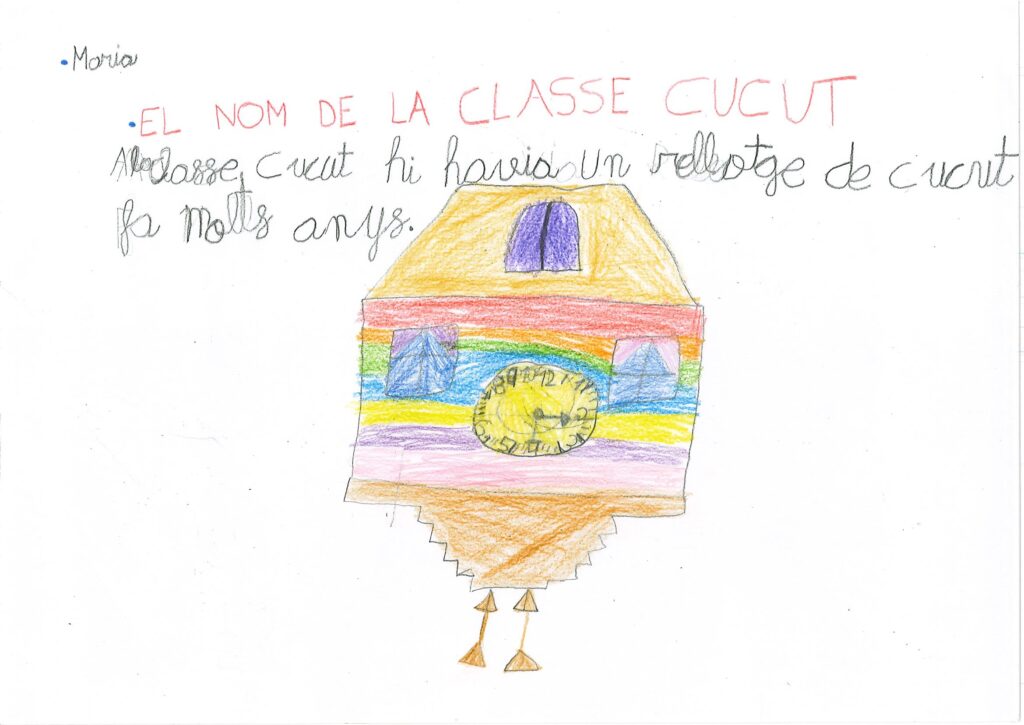 • Maria
• EL NOM DE LA CLASSE CUCUT
A la classe Cucut hi havia un rellotge de cucut
fa molts anys.
12